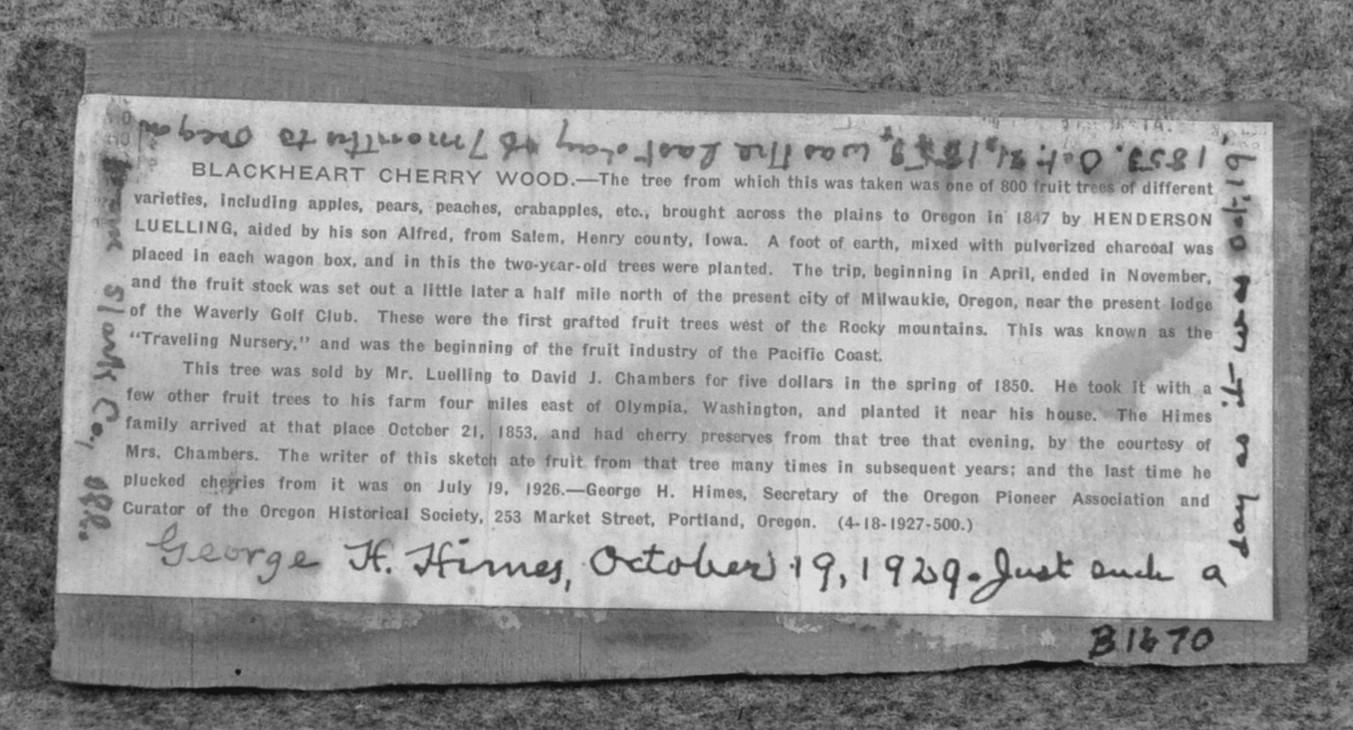 BLACKHEART CHERRY WOOD.—The tree from which this was taken was one of 800 fruit trees of different
varieties, including apples, pears, peaches, crabapples, etc., brought across the plains to Oregon in 1847 by HENDERSON
LUELLING, aided by his son Alfred, from Salem, Henry county, Iowa. A foot of earth, mixed with pulverized charcoal was
placed in each wagon box, and in this the two-year-old trees were planted. The trip, beginning in April, ended in November,
and the fruit stock was set out a little later a half mile north of the present city of Milwaukie, Oregon, near the present lodge
of the Waverly Golf Club. These were the first grafted fruit trees west of the Rocky mountains. This was known as the
"Traveling Nursery," and was the beginning of the fruit industry of the Pacific Coast.
This tree was sold by Mr. Luelling to David J. Chambers for five dollars in the spring of 1850. He took it with a
few other fruit trees to his farm four miles east of Olympia, Washington, and planted it near his house. The Himes
family arrived at that place October 21, 1853, and had cherry preserves from that tree that evening, by the courtesy of
Mrs. Chambers. The writer of this sketch ate fruit from that tree many times in subsequent years; and the last time he
plucked cherries from it was on July 19, 1926.—George H. Himes, Secretary of the Oregon Pioneer Association and
Curator of the Oregon Historical Society, 253 Market Street, Portland, Oregon. (4-18-1927-500.)
George H. Himes, October 19, 1929. Just such a
day as
1853. Oct. was the last day of 7 months to Oregon
Stark Co., Ills.
B1670